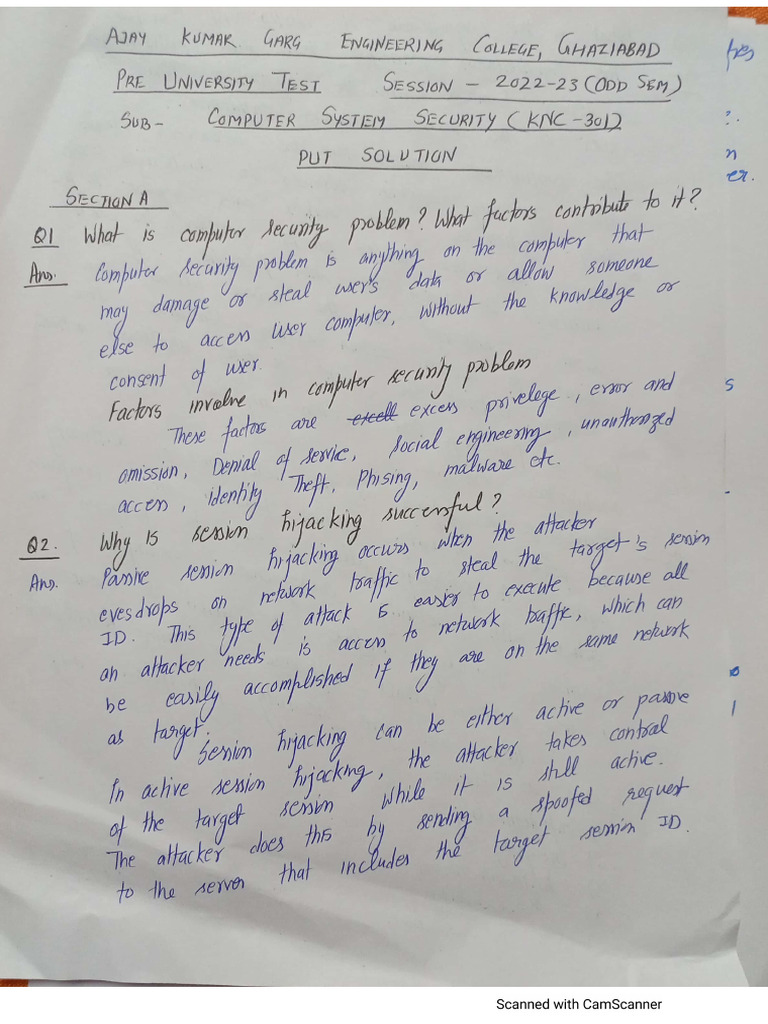 AJAY KUMAR GARG ENGINEERING COLLEGE, GHAZIABAD
PRE UNIVERSITY TEST SESSION - 2022-23 (ODD SEM)
SUB- COMPUTER SYSTEM SECURITY (KNC-301)
PUT SOLUTION
SECTION A
Q1 What is computer security problem? What factors contribute to it?
Ans. Computer security problem is anything on the computer that
may damage or steal user's data or allow someone
else to access user computer, without the knowledge or
consent of user.
Factors involve in computer security problem
These factors are excell excess privelege, error and
omission, Denial of service, Social engineering, unauthorized
access, identity Theft, Phising, malware etc.
Q2. Why is session hijacking successful?
Ans. Passive session hijacking occurs when the attacker
evesdrops on network traffic to steal the target's session
ID. This type of attack is easier to execute because all
an attacker needs is access to network traffic, which can
be easily accomplished if they are on the same network
as target.
Session hijacking can be either active or passive
In active session hijacking, the attacker takes control
of the target session while it is still active.
The attacker does this by sending a spoofed request
to the server that includes the target session ID.
Scanned with CamScanner